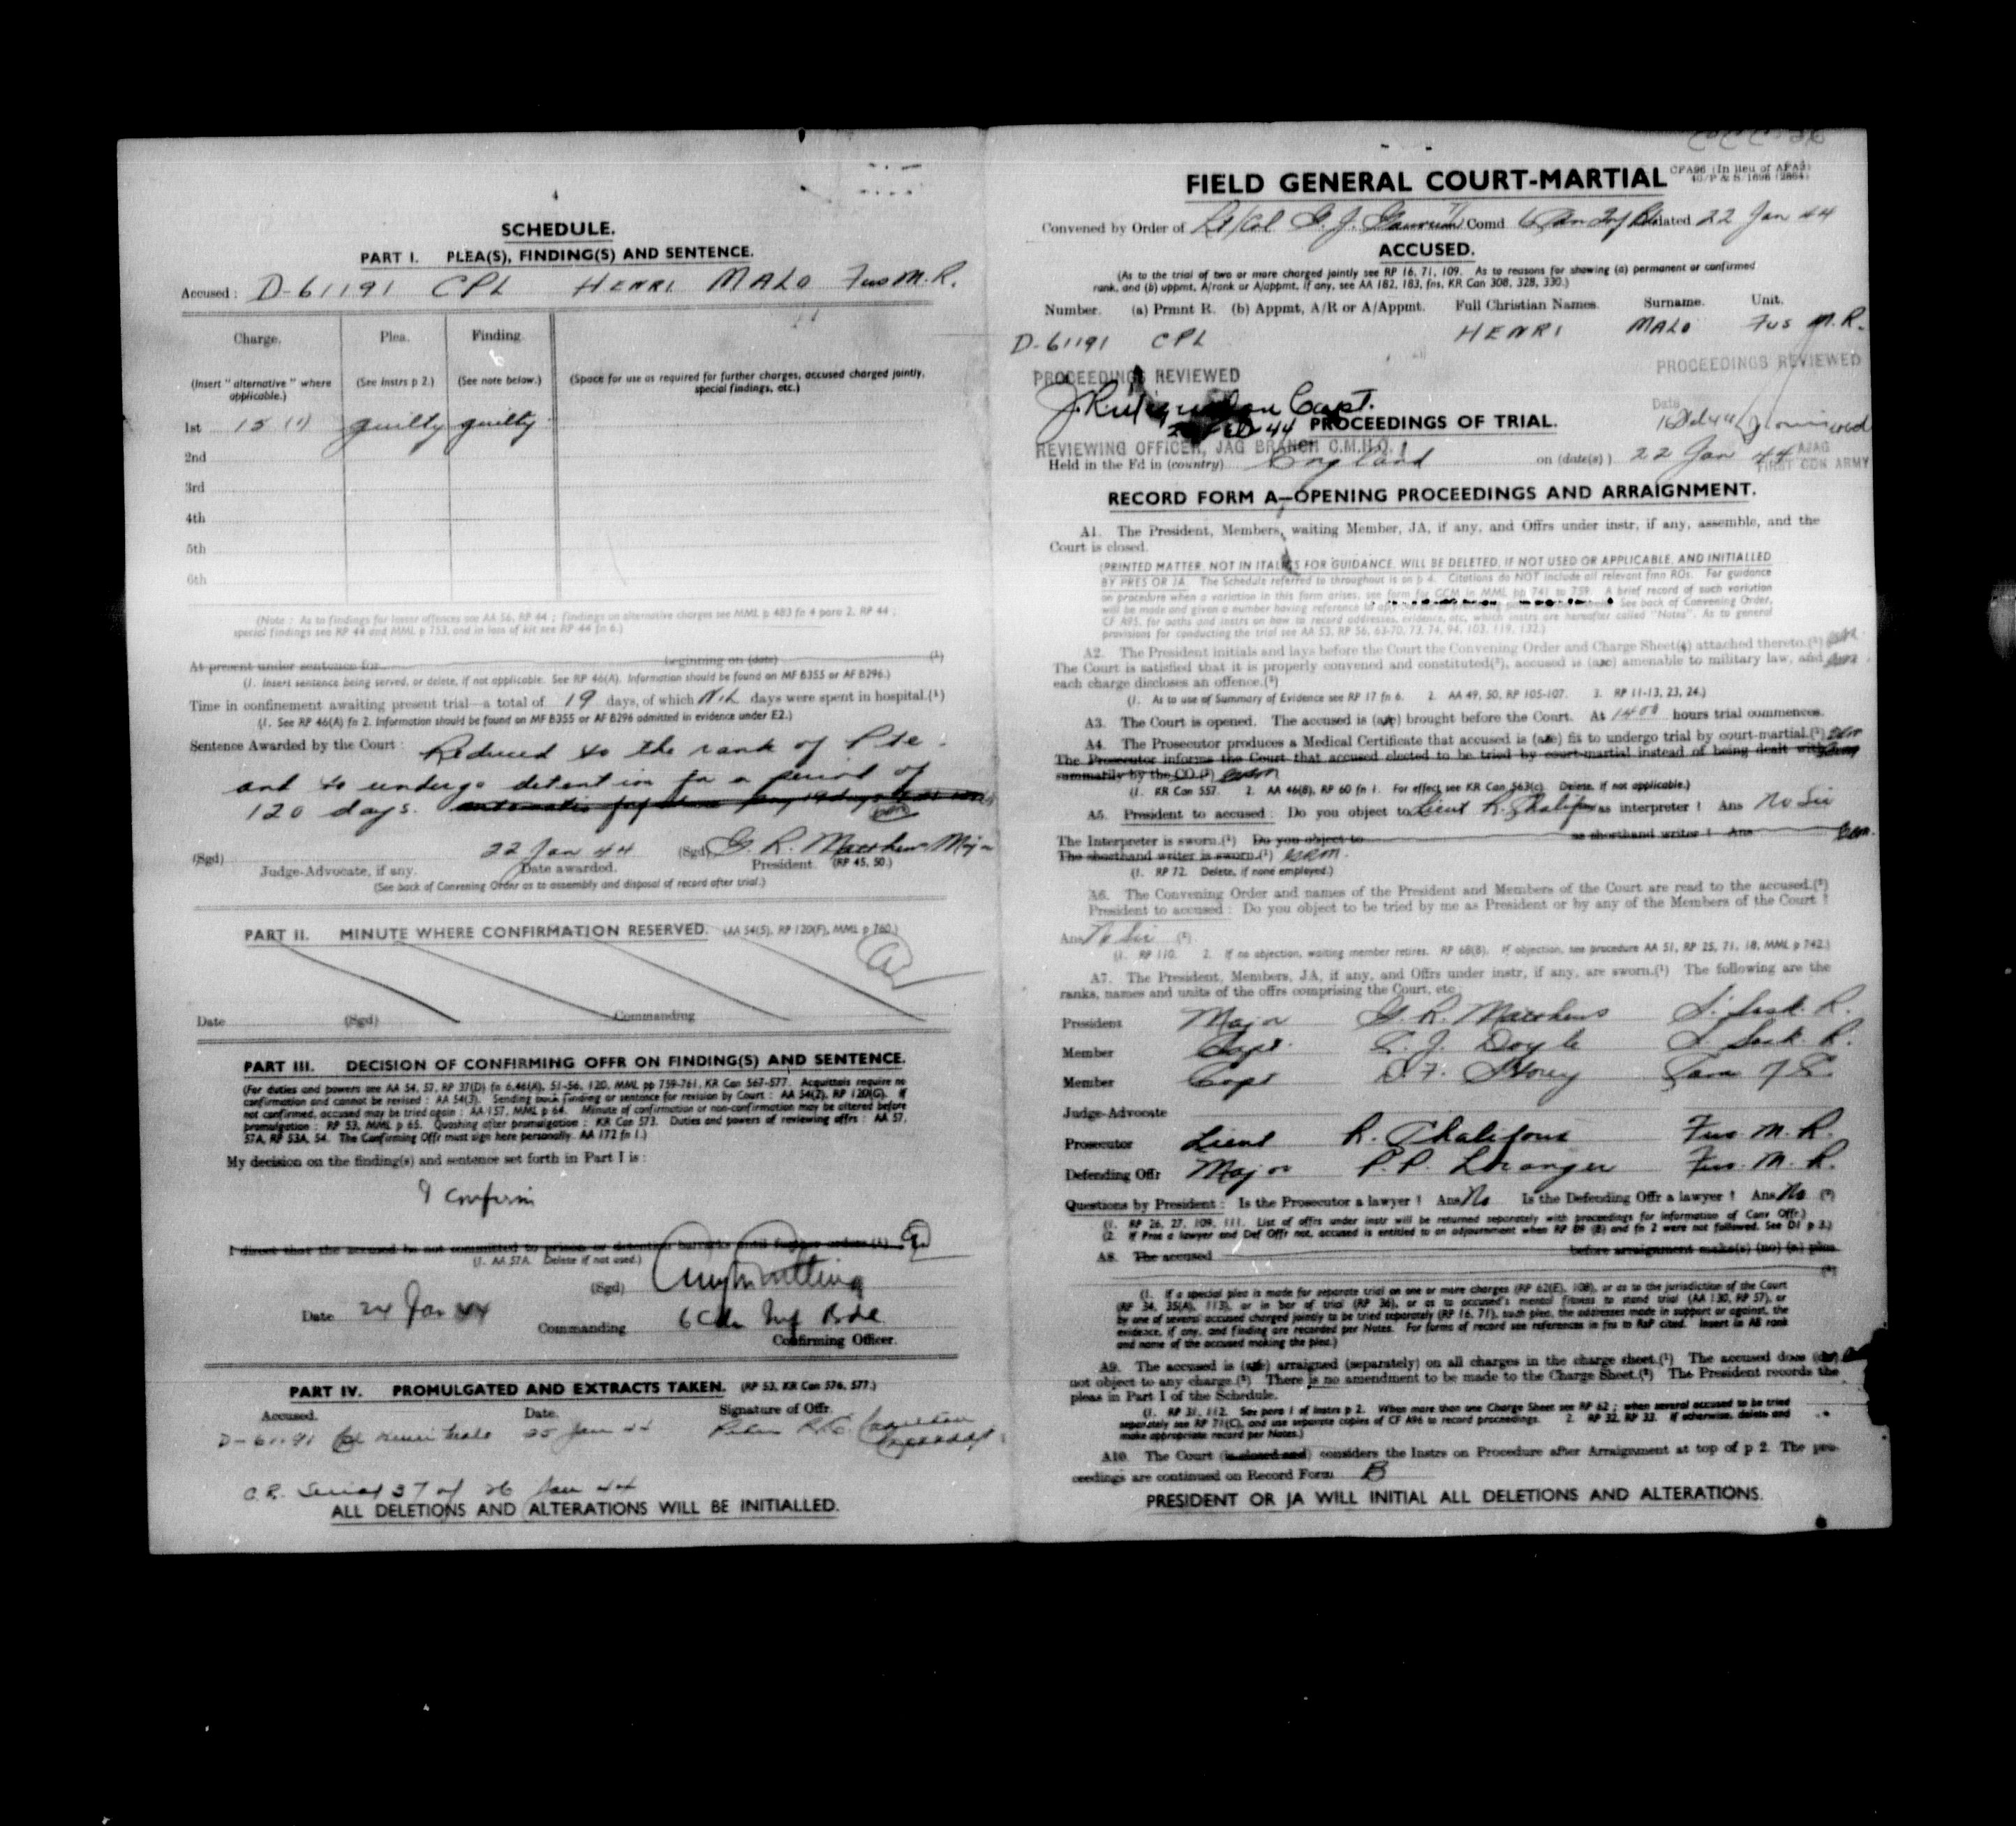 SCHEDULE.
PART I. PLEA(S), FINDING(S) AND SENTENCE.
Accused: D-61191 CPL HENRI MALO Fus M.R.
Charge. Plea. Finding.
(Insert "alternative" where applicable.) (See Instrs p 2.) (See note below.) (Space for use as required for further charges, accused charged jointly, special findings, etc.)
1st 15 (1) guilty guilty
2nd
3rd
4th
5th
6th
(Note: As to findings for lesser offences see AA 56, RP 44; findings on alternative charges see MML p 483 fn 4 para 2, RP 44;
special findings see RP 44 and MML p 753, and in loss of kit see RP 44 fn 6.)
At present under sentence for beginning on (date) (1)
(1. Insert sentence being served, or delete, if not applicable. See RP 46(A). Information should be found on MF B355 or AF B296.)
Time in confinement awaiting present trial—a total of 19 days, of which NIL days were spent in hospital.(1)
(1. See RP 46(A) fn 2. Information should be found on MF B355 or AF B296 admitted in evidence under E2.)
Sentence Awarded by the Court: Reduced to the rank of Pte.
and to undergo detention for a period of
120 days.
(Sgd) 22 Jan 44 (Sgd) G. R. Matthews Major
Judge-Advocate, if any. Date awarded. President. (RP 45, 50.)
(See back of Convening Order as to assembly and disposal of record after trial.)
PART II. MINUTE WHERE CONFIRMATION RESERVED. (AA 54(5), RP 120(F), MML p 760.)
Date (Sgd) Commanding
PART III. DECISION OF CONFIRMING OFFR ON FINDING(S) AND SENTENCE.
(For duties and powers see AA 54, 57, RP 37(D) fn 6,46(A), 51-56, 120, MML pp 759-761, KR Can 567-577. Acquittals require no
confirmation and cannot be revised: AA 54(3). Sending back finding or sentence for revision by Court: AA 54(2), RP 120(G). If
not confirmed, accused may be tried again: AA 157, MML p 64. Minute of confirmation or non-confirmation may be altered before
promulgation: RP 53, MML p 65. Quashing after promulgation: KR Can 573. Duties and powers of reviewing offrs: AA 57,
57A, RP 53A, 54. The Confirming Offr must sign here personally. AA 172 fn 1.)
My decision on the finding(s) and sentence set forth in Part I is:
I confirm
I direct that the accused be not committed to prison or detention barracks until further orders.(1)
(1. AA 57A. Delete if not used.)
(Sgd)
Date 24 Jan 44 Commanding 6 Cdn Inf Bde
Confirming Officer.
PART IV. PROMULGATED AND EXTRACTS TAKEN. (RP 53, KR Can 576, 577.)
Accused. Date. Signature of Offr.
D-61191 Cpl Henri Malo 25 Jan 44
C.R. Serial 37 of 26 Jan 44
ALL DELETIONS AND ALTERATIONS WILL BE INITIALLED.
FIELD GENERAL COURT-MARTIAL CFA96 (In lieu of AFA3)
Convened by Order of Lt/Col G. J. Comd 6 Cdn Inf Bde dated 22 Jan 44
ACCUSED.
(As to the trial of two or more charged jointly see RP 16, 71, 109. As to reasons for showing (a) permanent or confirmed
rank, and (b) appmt, A/rank or A/appmt, if any, see AA 182, 183, fns, KR Can 308, 328, 330.)
Number. (a) Prmnt R. (b) Appmt, A/R or A/Appmt. Full Christian Names. Surname. Unit.
D-61191 CPL HENRI MALO Fus M.R.
PROCEEDINGS REVIEWED PROCEEDINGS REVIEWED
Capt. Date
PROCEEDINGS OF TRIAL.
REVIEWING OFFICER, JAG BRANCH C.M.H.Q. AJAG
Held in the Fd in (country) England on (date(s)) 22 Jan 44 FIRST CDN ARMY
RECORD FORM A—OPENING PROCEEDINGS AND ARRAIGNMENT.
A1. The President, Members, waiting Member, JA, if any, and Offrs under instr, if any, assemble, and the
Court is closed.
(PRINTED MATTER, NOT IN ITALICS FOR GUIDANCE, WILL BE DELETED, IF NOT USED OR APPLICABLE, AND INITIALLED
BY PRES OR JA. The Schedule referred to throughout is on p 4. Citations do NOT include all relevant fmn ROs. For guidance
on procedure when a variation in this form arises, see form for GCM in MML pp 741 to 759. A brief record of such variation
will be made and given a number having reference to See back of Convening Order,
CF A95, for oaths and instrs on how to record addresses, evidence, etc, which instrs are hereafter called "Notes". As to general
provisions for conducting the trial see AA 53, RP 56, 63-70, 73, 74, 94, 103, 119, 132.)
A2. The President initials and lays before the Court the Convening Order and Charge Sheet(s) attached thereto.(1)
The Court is satisfied that it is properly convened and constituted(2), accused is (are) amenable to military law, and
each charge discloses an offence.(3)
(1. As to use of Summary of Evidence see RP 17 fn 6. 2. AA 49, 50, RP 105-107. 3. RP 11-13, 23, 24.)
A3. The Court is opened. The accused is (are) brought before the Court. At 1400 hours trial commences.
A4. The Prosecutor produces a Medical Certificate that accused is (are) fit to undergo trial by court-martial.(1)
The Prosecutor informs the Court that accused elected to be tried by court-martial instead of being dealt with
summarily by the CO.(2)
(1. KR Can 557. 2. AA 46(8), RP 60 fn 1. For effect see KR Can 563(c). Delete, if not applicable.)
A5. President to accused: Do you object to Lieut R. Chalifoux as interpreter? Ans No Sir
The Interpreter is sworn.(1) Do you object to as shorthand writer? Ans
The shorthand writer is sworn.(1)
(1. RP 72. Delete, if none employed.)
A6. The Convening Order and names of the President and Members of the Court are read to the accused.(1)
President to accused: Do you object to be tried by me as President or by any of the Members of the Court?
Ans No Sir (2)
(1. RP 110. 2. If no objection, waiting member retires. RP 68(B). If objection, see procedure AA 51, RP 25, 71, 18, MML p 742.)
A7. The President, Members, JA, if any, and Offrs under instr, if any, are sworn.(1) The following are the
ranks, names and units of the offrs comprising the Court, etc:
President Major G. R. Matthews S. Sask. R.
Member Capt. J. Doyle S. Sask R.
Member Capt D. F. Storey Cam of C.
Judge-Advocate
Prosecutor Lieut R. Chalifoux Fus. M. R.
Defending Offr Major P.P. Loranger Fus. M. R.
Questions by President: Is the Prosecutor a lawyer? Ans No Is the Defending Offr a lawyer? Ans No (2)
(1. RP 26, 27, 109, 111. List of offrs under instr will be returned separately with proceedings for information of Conv Offr.)
(2. If Pros a lawyer and Def Offr not, accused is entitled to an adjournment when RP 89 (B) and fn 2 were not followed. See D1 p 3.)
A8. The accused before arraignment make(s) (no) (a) plea
(1. If a special plea is made for separate trial on one or more charges (RP 62(E), 108), or as to the jurisdiction of the Court
(RP 34, 35(A), 113), or in bar of trial (RP 36), or as to accused's mental fitness to stand trial (AA 130, RP 57), or
by one of several accused charged jointly to be tried separately (RP 16, 71), such plea, the addresses made in support or against, the
evidence, if any, and finding are recorded per Notes. For forms of record see references in fns to RsP cited. Insert in A8 rank
and name of the accused making the plea.)
A9. The accused is (are) arraigned (separately) on all charges in the charge sheet.(1) The accused does (do)
not object to any charge.(2) There is no amendment to be made to the Charge Sheet.(2) The President records the
pleas in Part I of the Schedule.
(1. RP 31, 112. See para 1 of Instrs p 2. When more than one Charge Sheet see RP 62; when several accused to be tried
separately see RP 71(C), and use separate copies of CF A96 to record proceedings. 2. RP 32, RP 33. If otherwise, delete and
make appropriate record per Notes.)
A10. The Court (is closed and) considers the Instrs on Procedure after Arraignment at top of p 2. The pro-
ceedings are continued on Record Form B
PRESIDENT OR JA WILL INITIAL ALL DELETIONS AND ALTERATIONS.